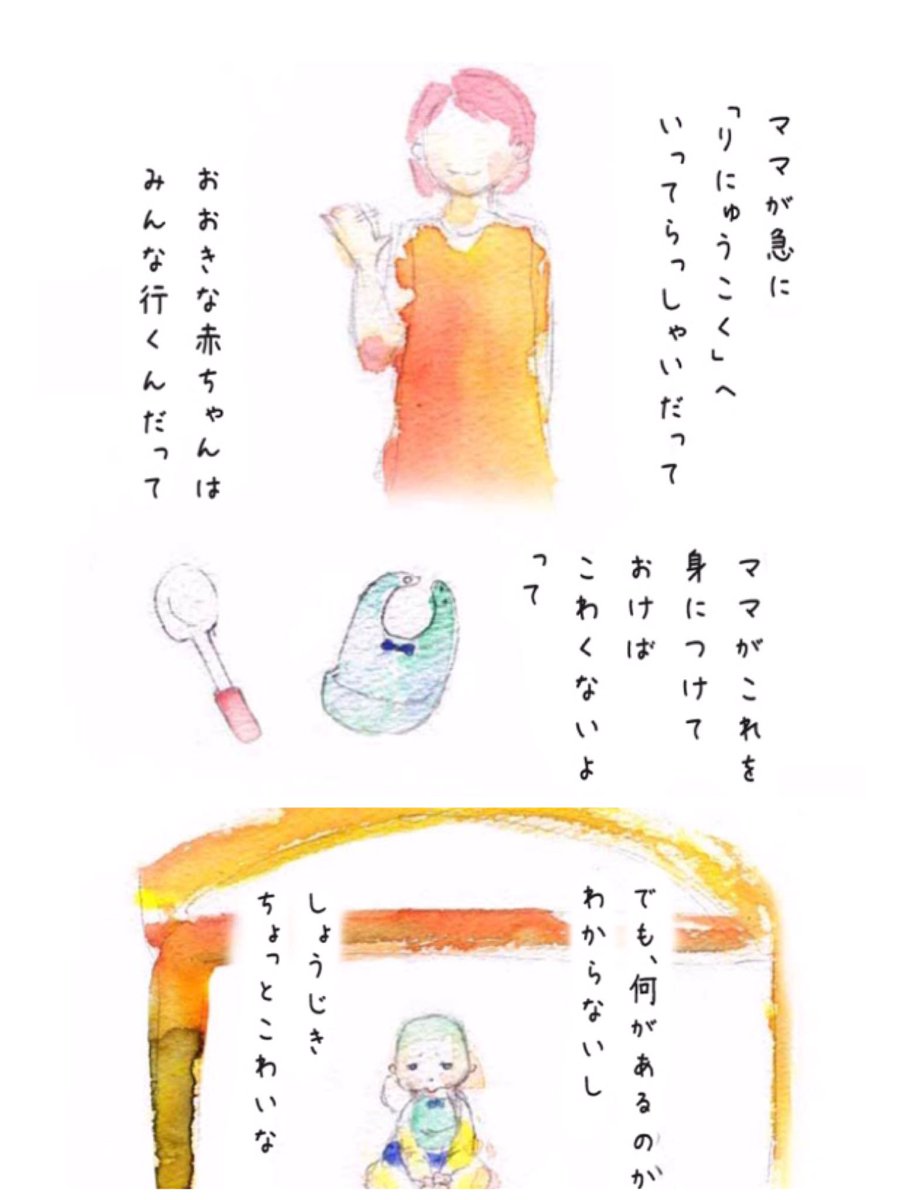 ママが急に
「りにゅうこく」へ
いってらっしゃいだって
おおきな赤ちゃんは
みんな行くんだって
ママがこれを
身につけて
おけば
こわくないよ
って
でも、何があるのか
わからないし
しょうじき
ちょっとこわいな